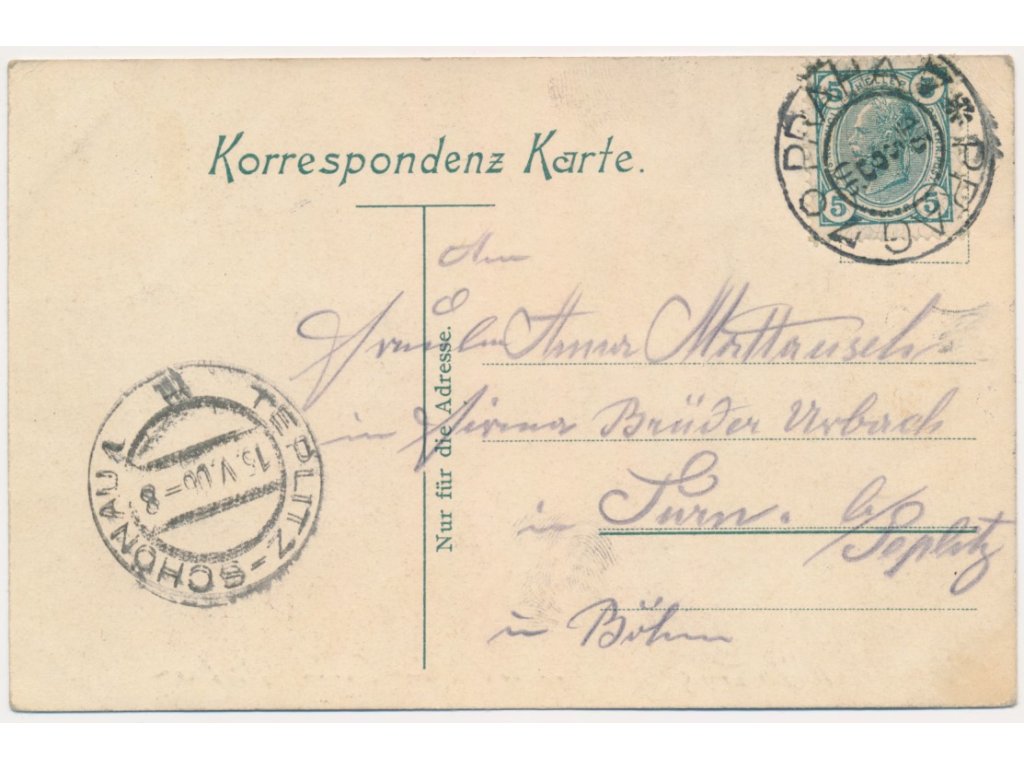 Korrespondenz Karte.
5 HELLER 5
5 5
PRAHA
PRAG
Nur für die Adresse.
An
Fräulein Anna Mattausch
in Firma Brüder Urbach
in Turn. b/
Teplitz
in Böhm
TEPLITZ-SCHÖNAU 1
15.V.06=8